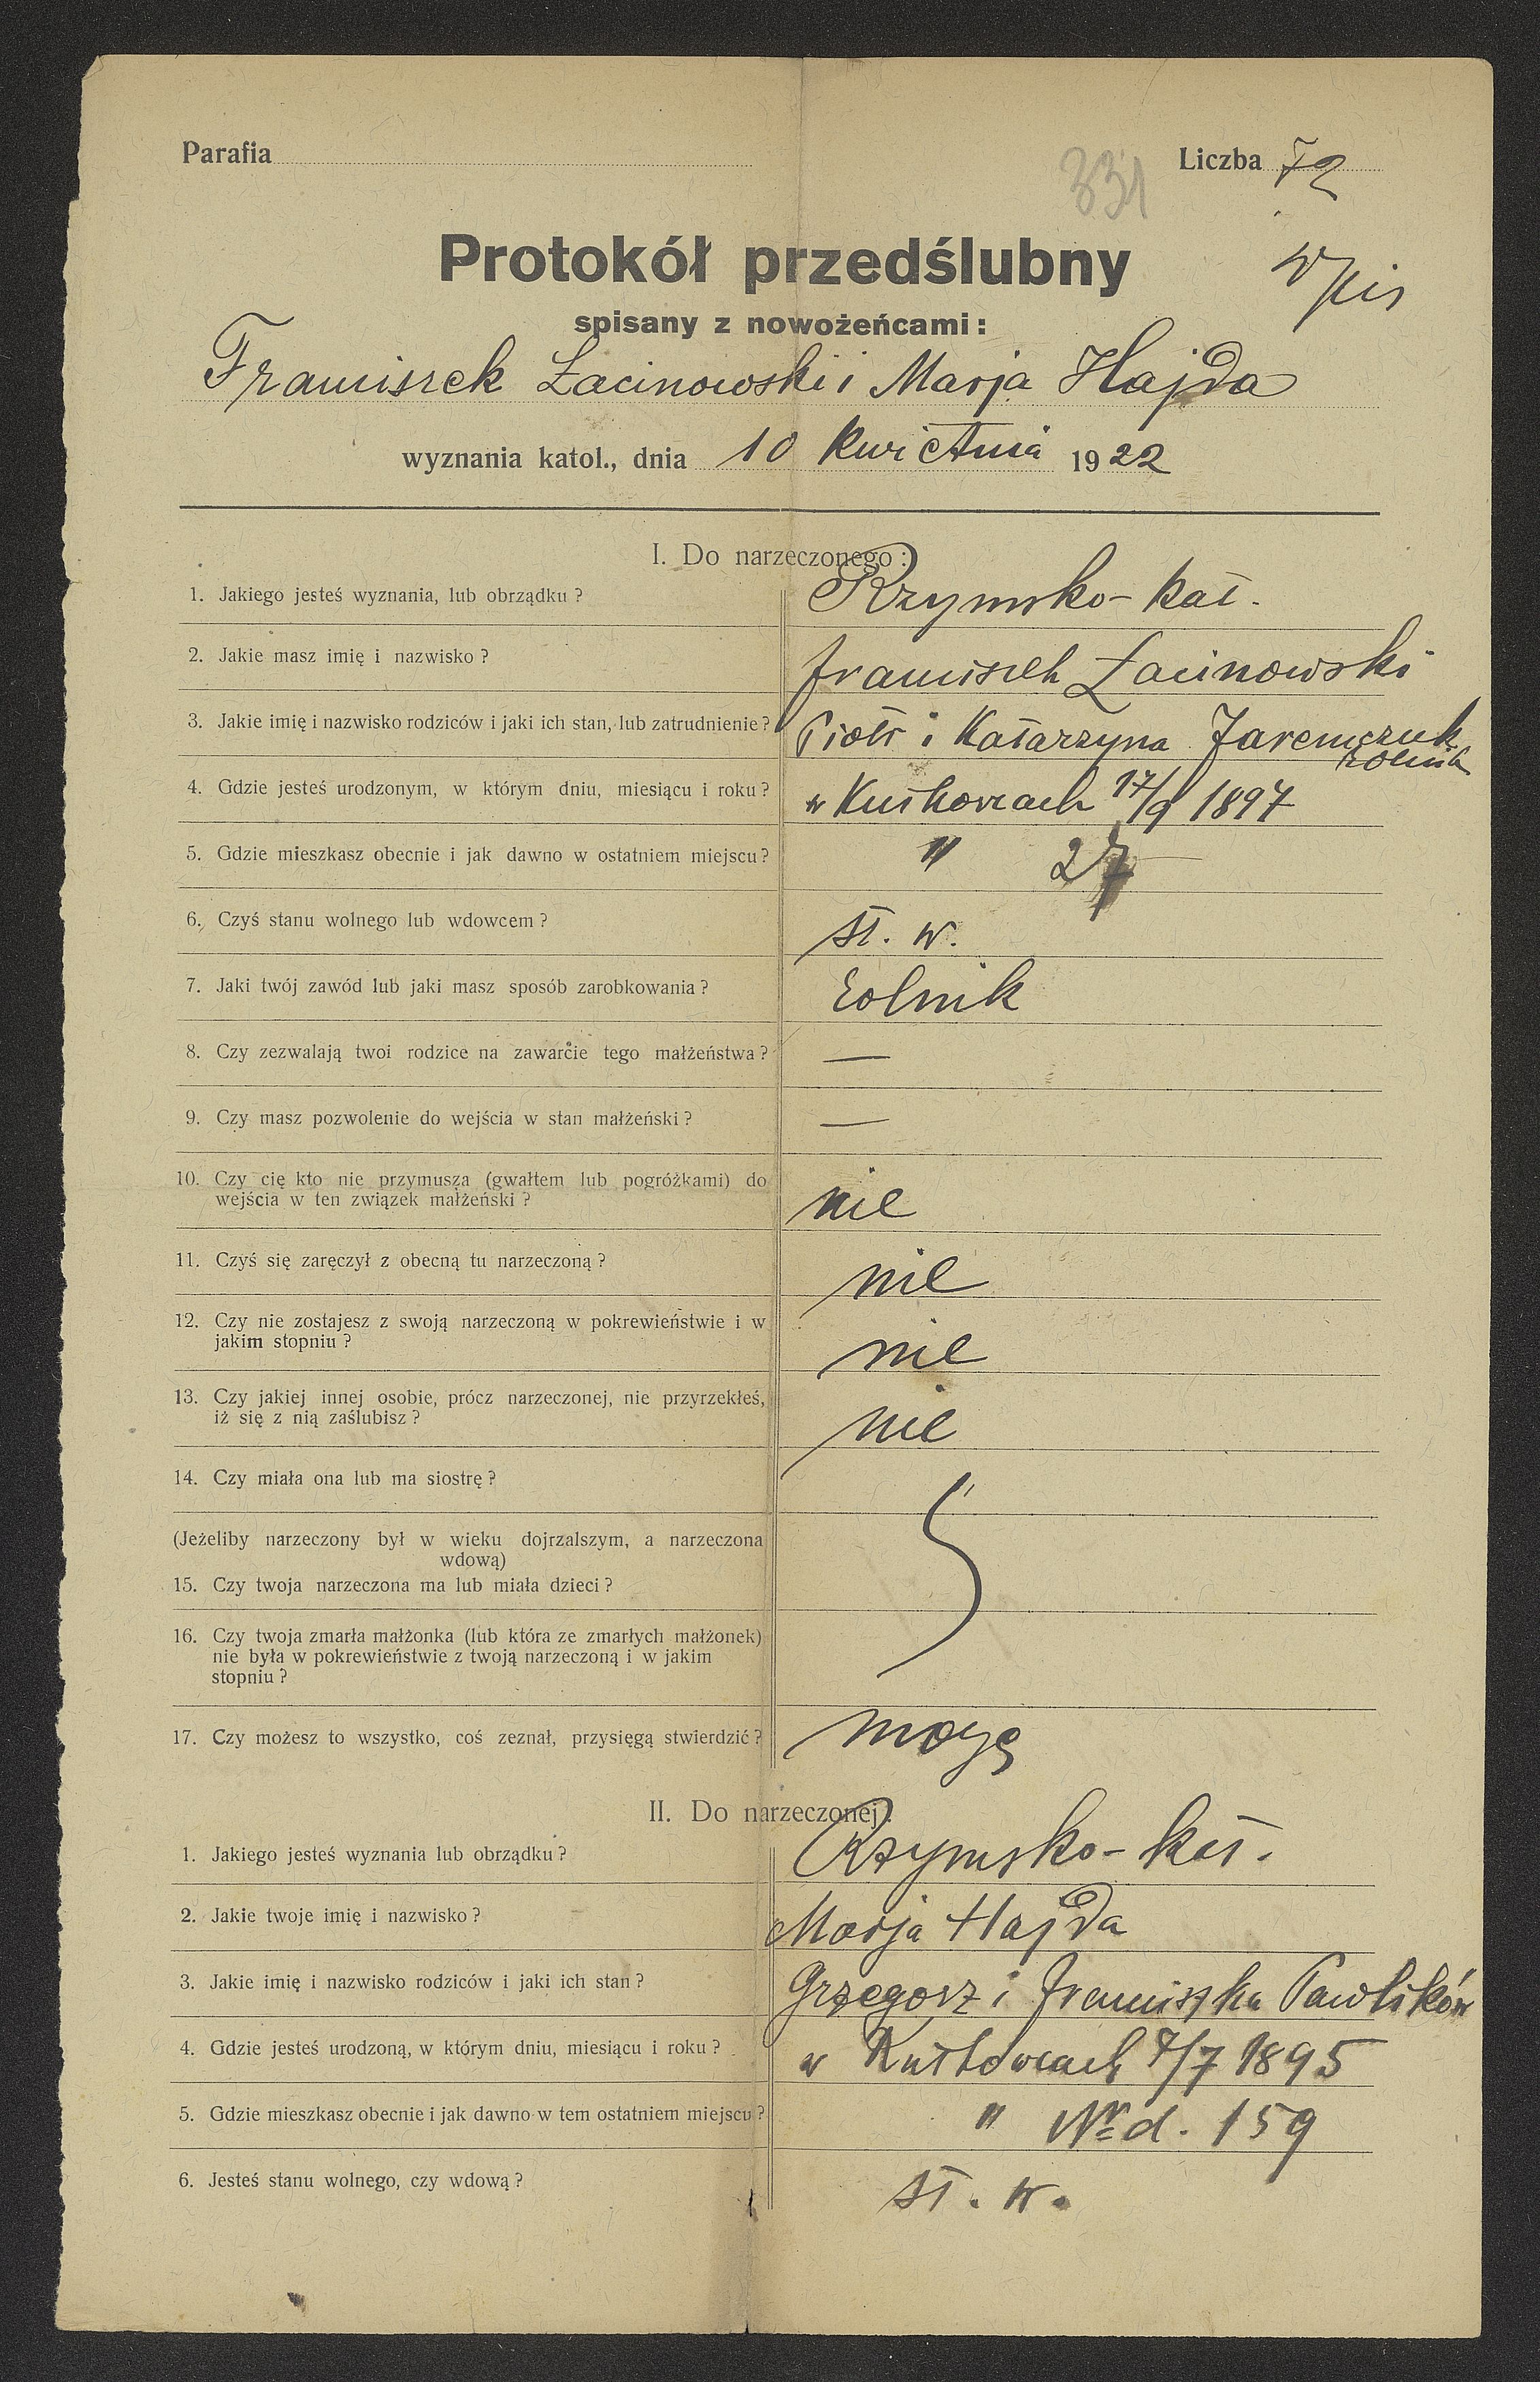 Parafia
331
Liczba 72
Wpis
Protokół przedślubny
spisany z nowożeńcami:
Franciszek Łacinowski i Marja Hajda
wyznania katol., dnia 10 Kwietnia 1922
I. Do narzeczonego:
1. Jakiego jesteś wyznania, lub obrządku? Rzymsko-kat.
2. Jakie masz imię i nazwisko? Franciszek Łacinowski
3. Jakie imię i nazwisko rodziców i jaki ich stan, lub zatrudnienie? Piotr i Katarzyna Jaremczuk
rolnik
4. Gdzie jesteś urodzonym, w którym dniu, miesiącu i roku? w 17/9 1897
5. Gdzie mieszkasz obecnie i jak dawno w ostatniem miejscu? " 27
6. Czyś stanu wolnego lub wdowcem? st. w.
7. Jaki twój zawód lub jaki masz sposób zarobkowania? rolnik
8. Czy zezwalają twoi rodzice na zawarcie tego małżeństwa? —
9. Czy masz pozwolenie do wejścia w stan małżeński? —
10. Czy cię kto nie przymusza (gwałtem lub pogróżkami) do
wejścia w ten związek małżeński? nie
11. Czyś się zaręczył z obecną tu narzeczoną? nie
12. Czy nie zostajesz z swoją narzeczoną w pokrewieństwie i w
jakim stopniu? nie
13. Czy jakiej innej osobie, prócz narzeczonej, nie przyrzekłeś,
iż się z nią zaślubisz? nie
14. Czy miała ona lub ma siostrę?
(Jeżeliby narzeczony był w wieku dojrzalszym, a narzeczona
wdową)
15. Czy twoja narzeczona ma lub miała dzieci?
16. Czy twoja zmarła małżonka (lub która ze zmarłych małżonek)
nie była w pokrewieństwie z twoją narzeczoną i w jakim
stopniu?
17. Czy możesz to wszystko, coś zeznał, przysięgą stwierdzić? mogę
II. Do narzeczonej:
1. Jakiego jesteś wyznania lub obrządku? Rzymsko-kat.
2. Jakie twoje imię i nazwisko? Marja Hajda
3. Jakie imię i nazwisko rodziców i jaki ich stan? Grzegorz i Franciszka Pawlików
4. Gdzie jesteś urodzoną, w którym dniu, miesiącu i roku? w 7/7 1895
5. Gdzie mieszkasz obecnie i jak dawno w tem ostatniem miejscu? " Nr d. 159
6. Jesteś stanu wolnego, czy wdową? st. w.